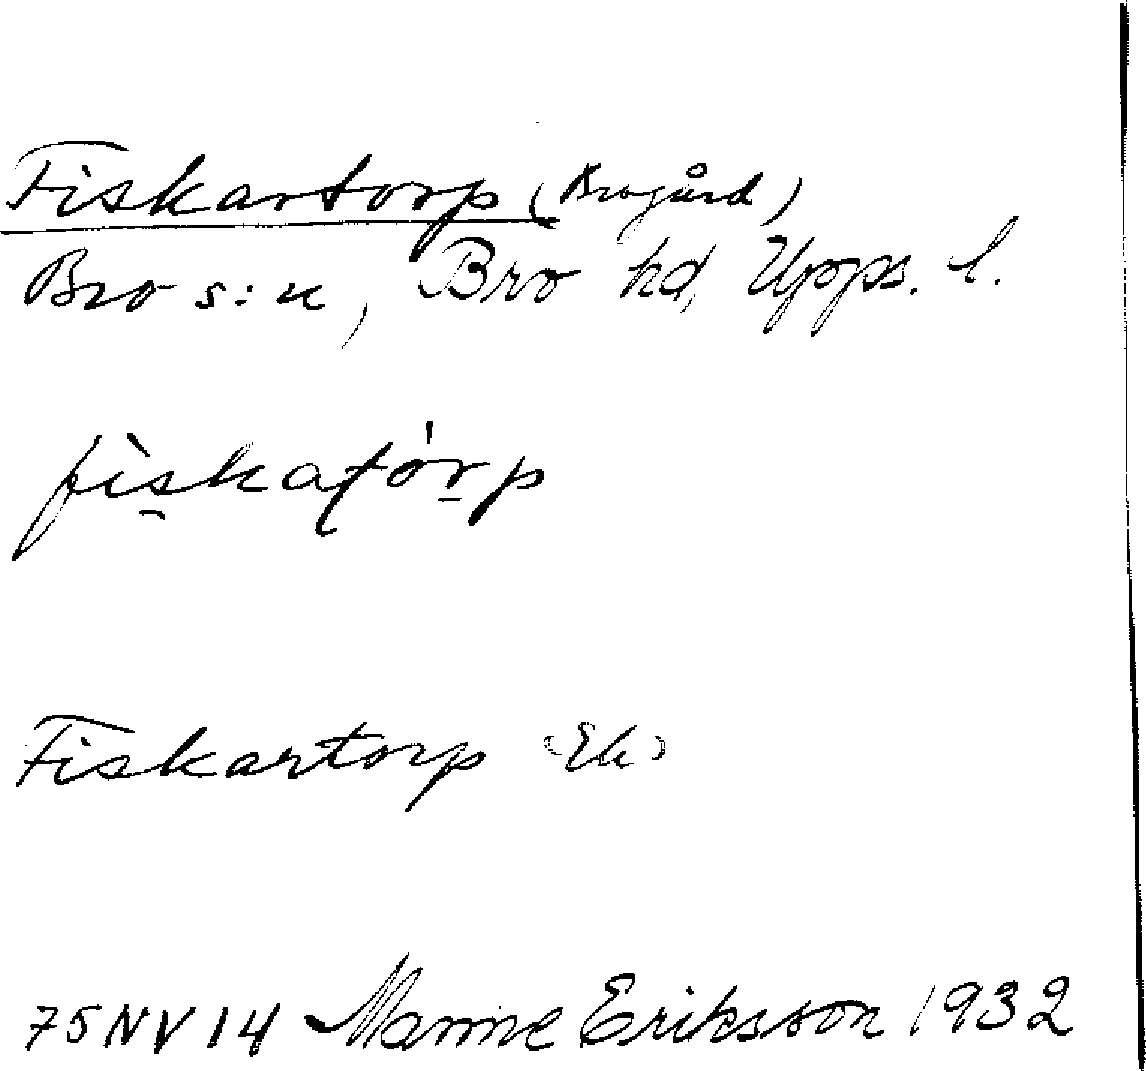 Fiskartorp (Brogård)
Bro s:n, Bro hd, Upps. l.
fìskatórp
Fiskartorp (Ek)
75 NV 14 Manne Eriksson 1932